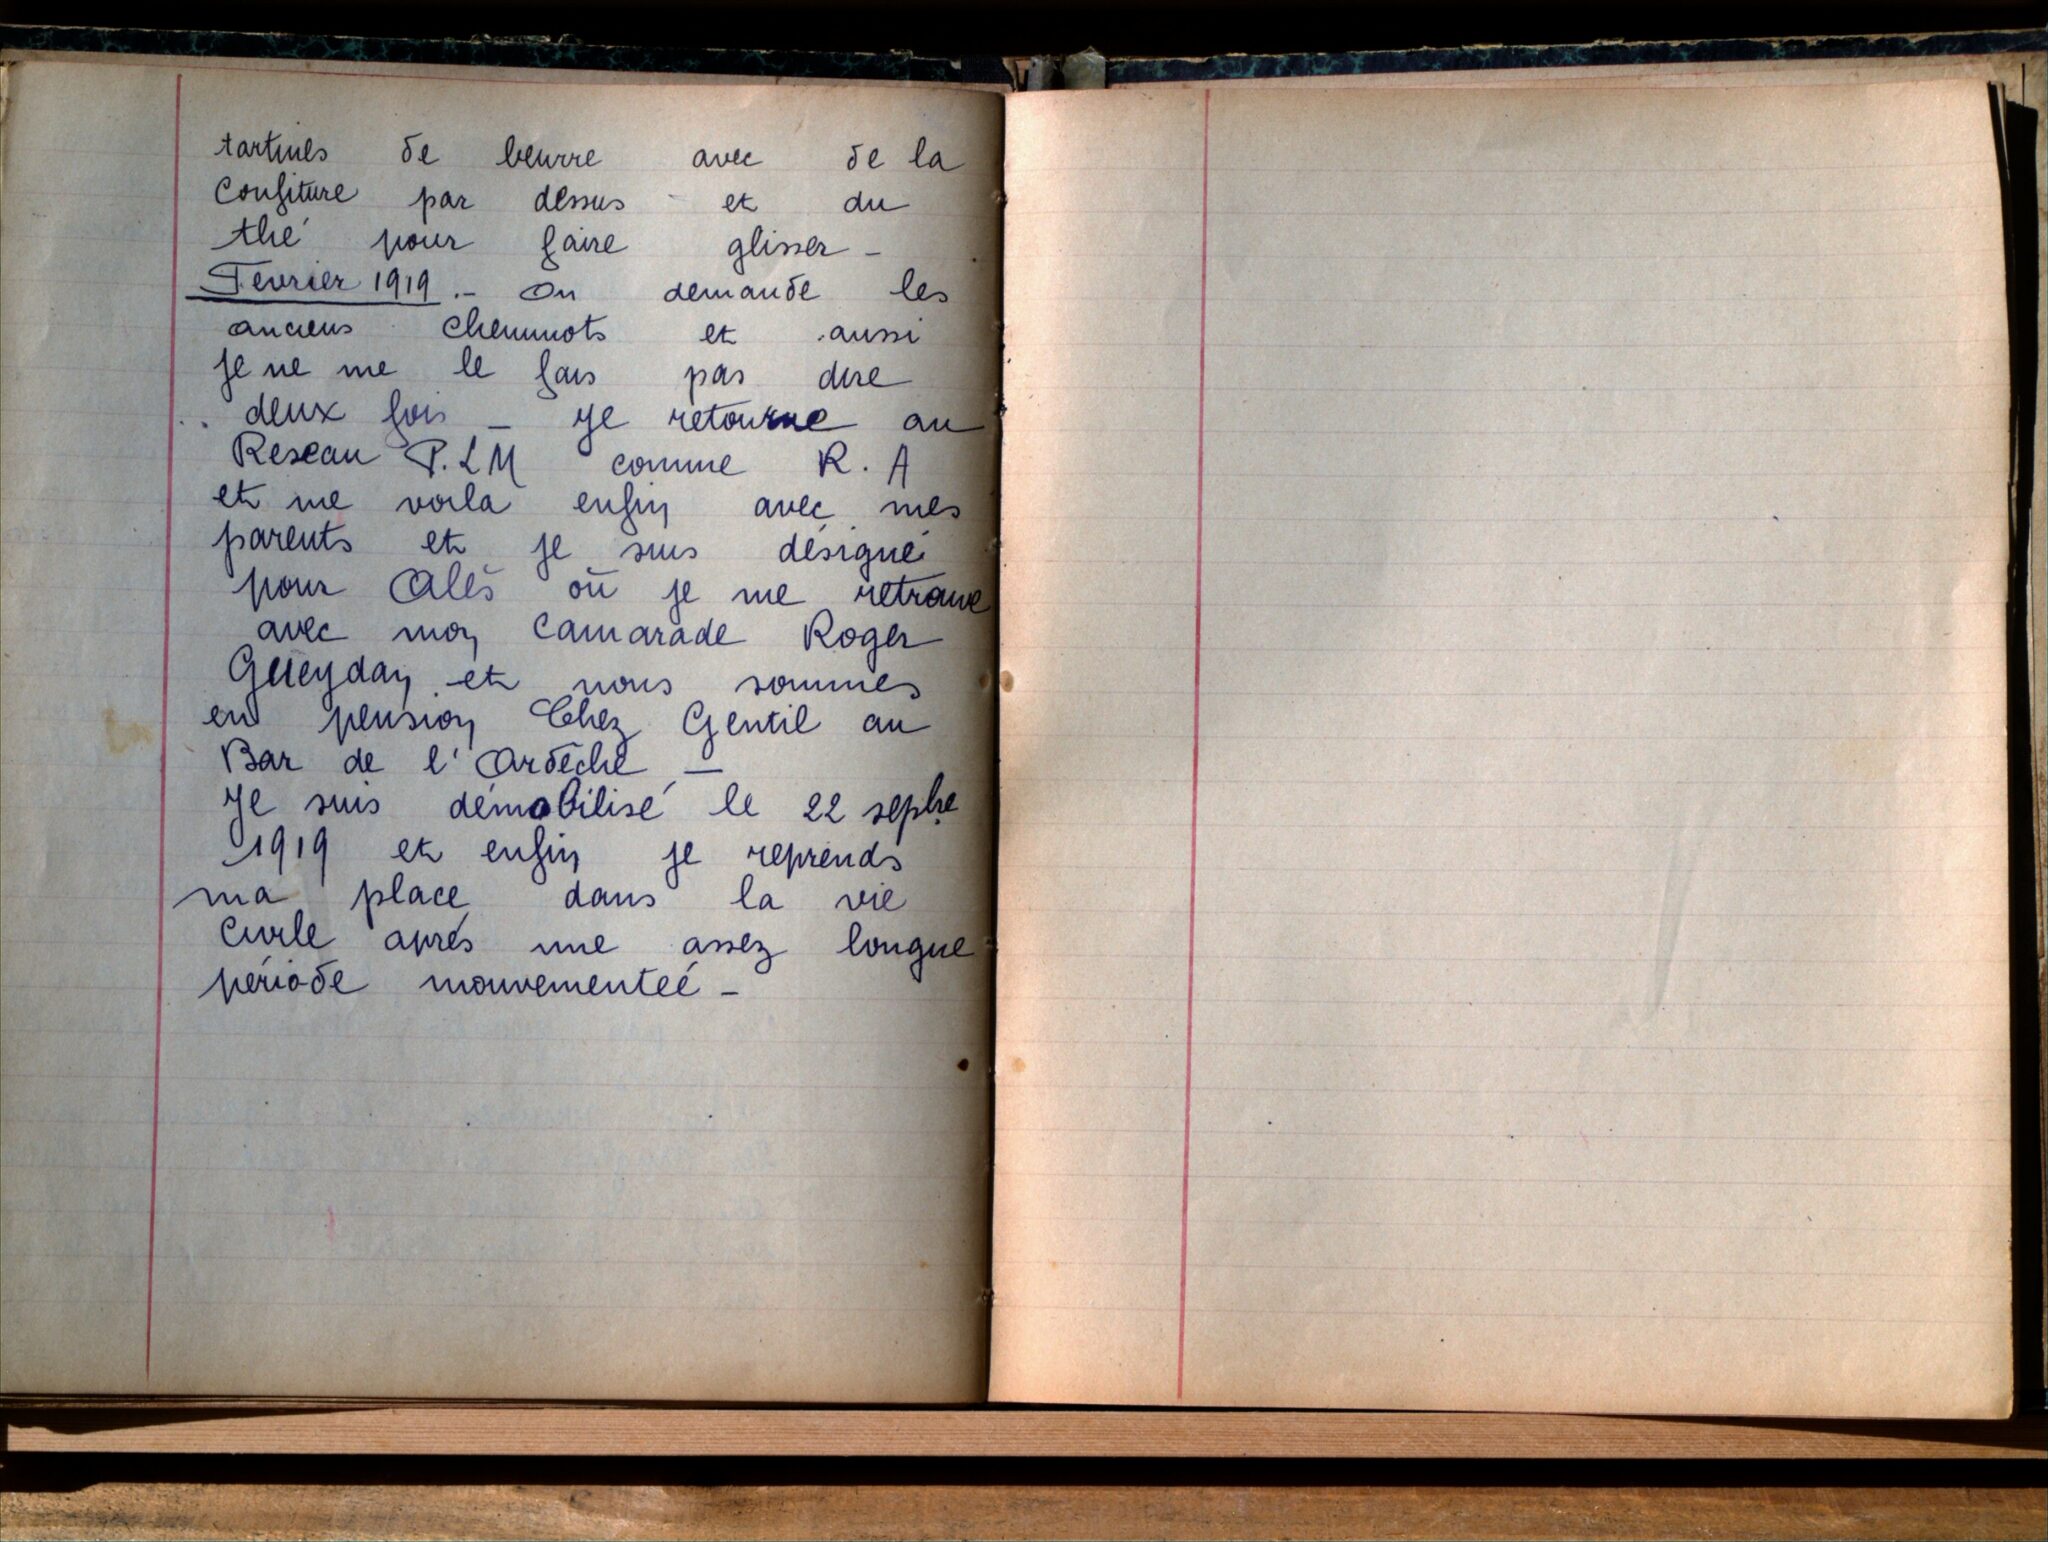 tartines de beurre avec de la
Confiture par dessus - et du
thé pour faire glisser -
Fevrier 1919 .- On demande les
anciens Cheminots et aussi
je ne me le fais pas dire
deux fois - je retourne au
Reseau P.L.M comme R.A
et me voila enfin avec mes
parents et je suis désigné
pour Alès où je me retrouve
avec mon Camarade Roger
Gueydan et nous sommes
en pension Chez Gentil au
Bar de l'Ardèche -
Je suis démobilisé le 22 sepbre
1919 et enfin je reprends
ma place dans la vie
Civile après une assez longue
période mouvementeé -